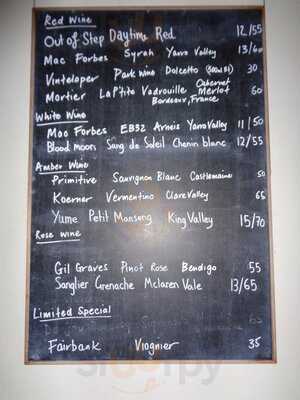 Red Wine
Out of Step Daytime Red 12/55
Mac Forbes Syrah Yarra Valley 13/60
Vinteloper Park Wine Dolcetto 30
Mortier La P'tite Vadrouille Cabernet Merlot 60
Bordeaux, France
White Wine
Mac Forbes EB32 Arneis Yarra Valley 11/50
Blood moon Sang de Soleil Chenin blanc 12/55
Amber Wine
Primitive Sauvignon Blanc Castlemaine 50
Koerner Vermentino Clare Valley 65
Yume Petit Manseng King Valley 15/70
Rose wine
Gil Graves Pinot Rose Bendigo 55
Sanglier Grenache Mclaren Vale 13/65
Limited Special
Fairbank Viognier 35